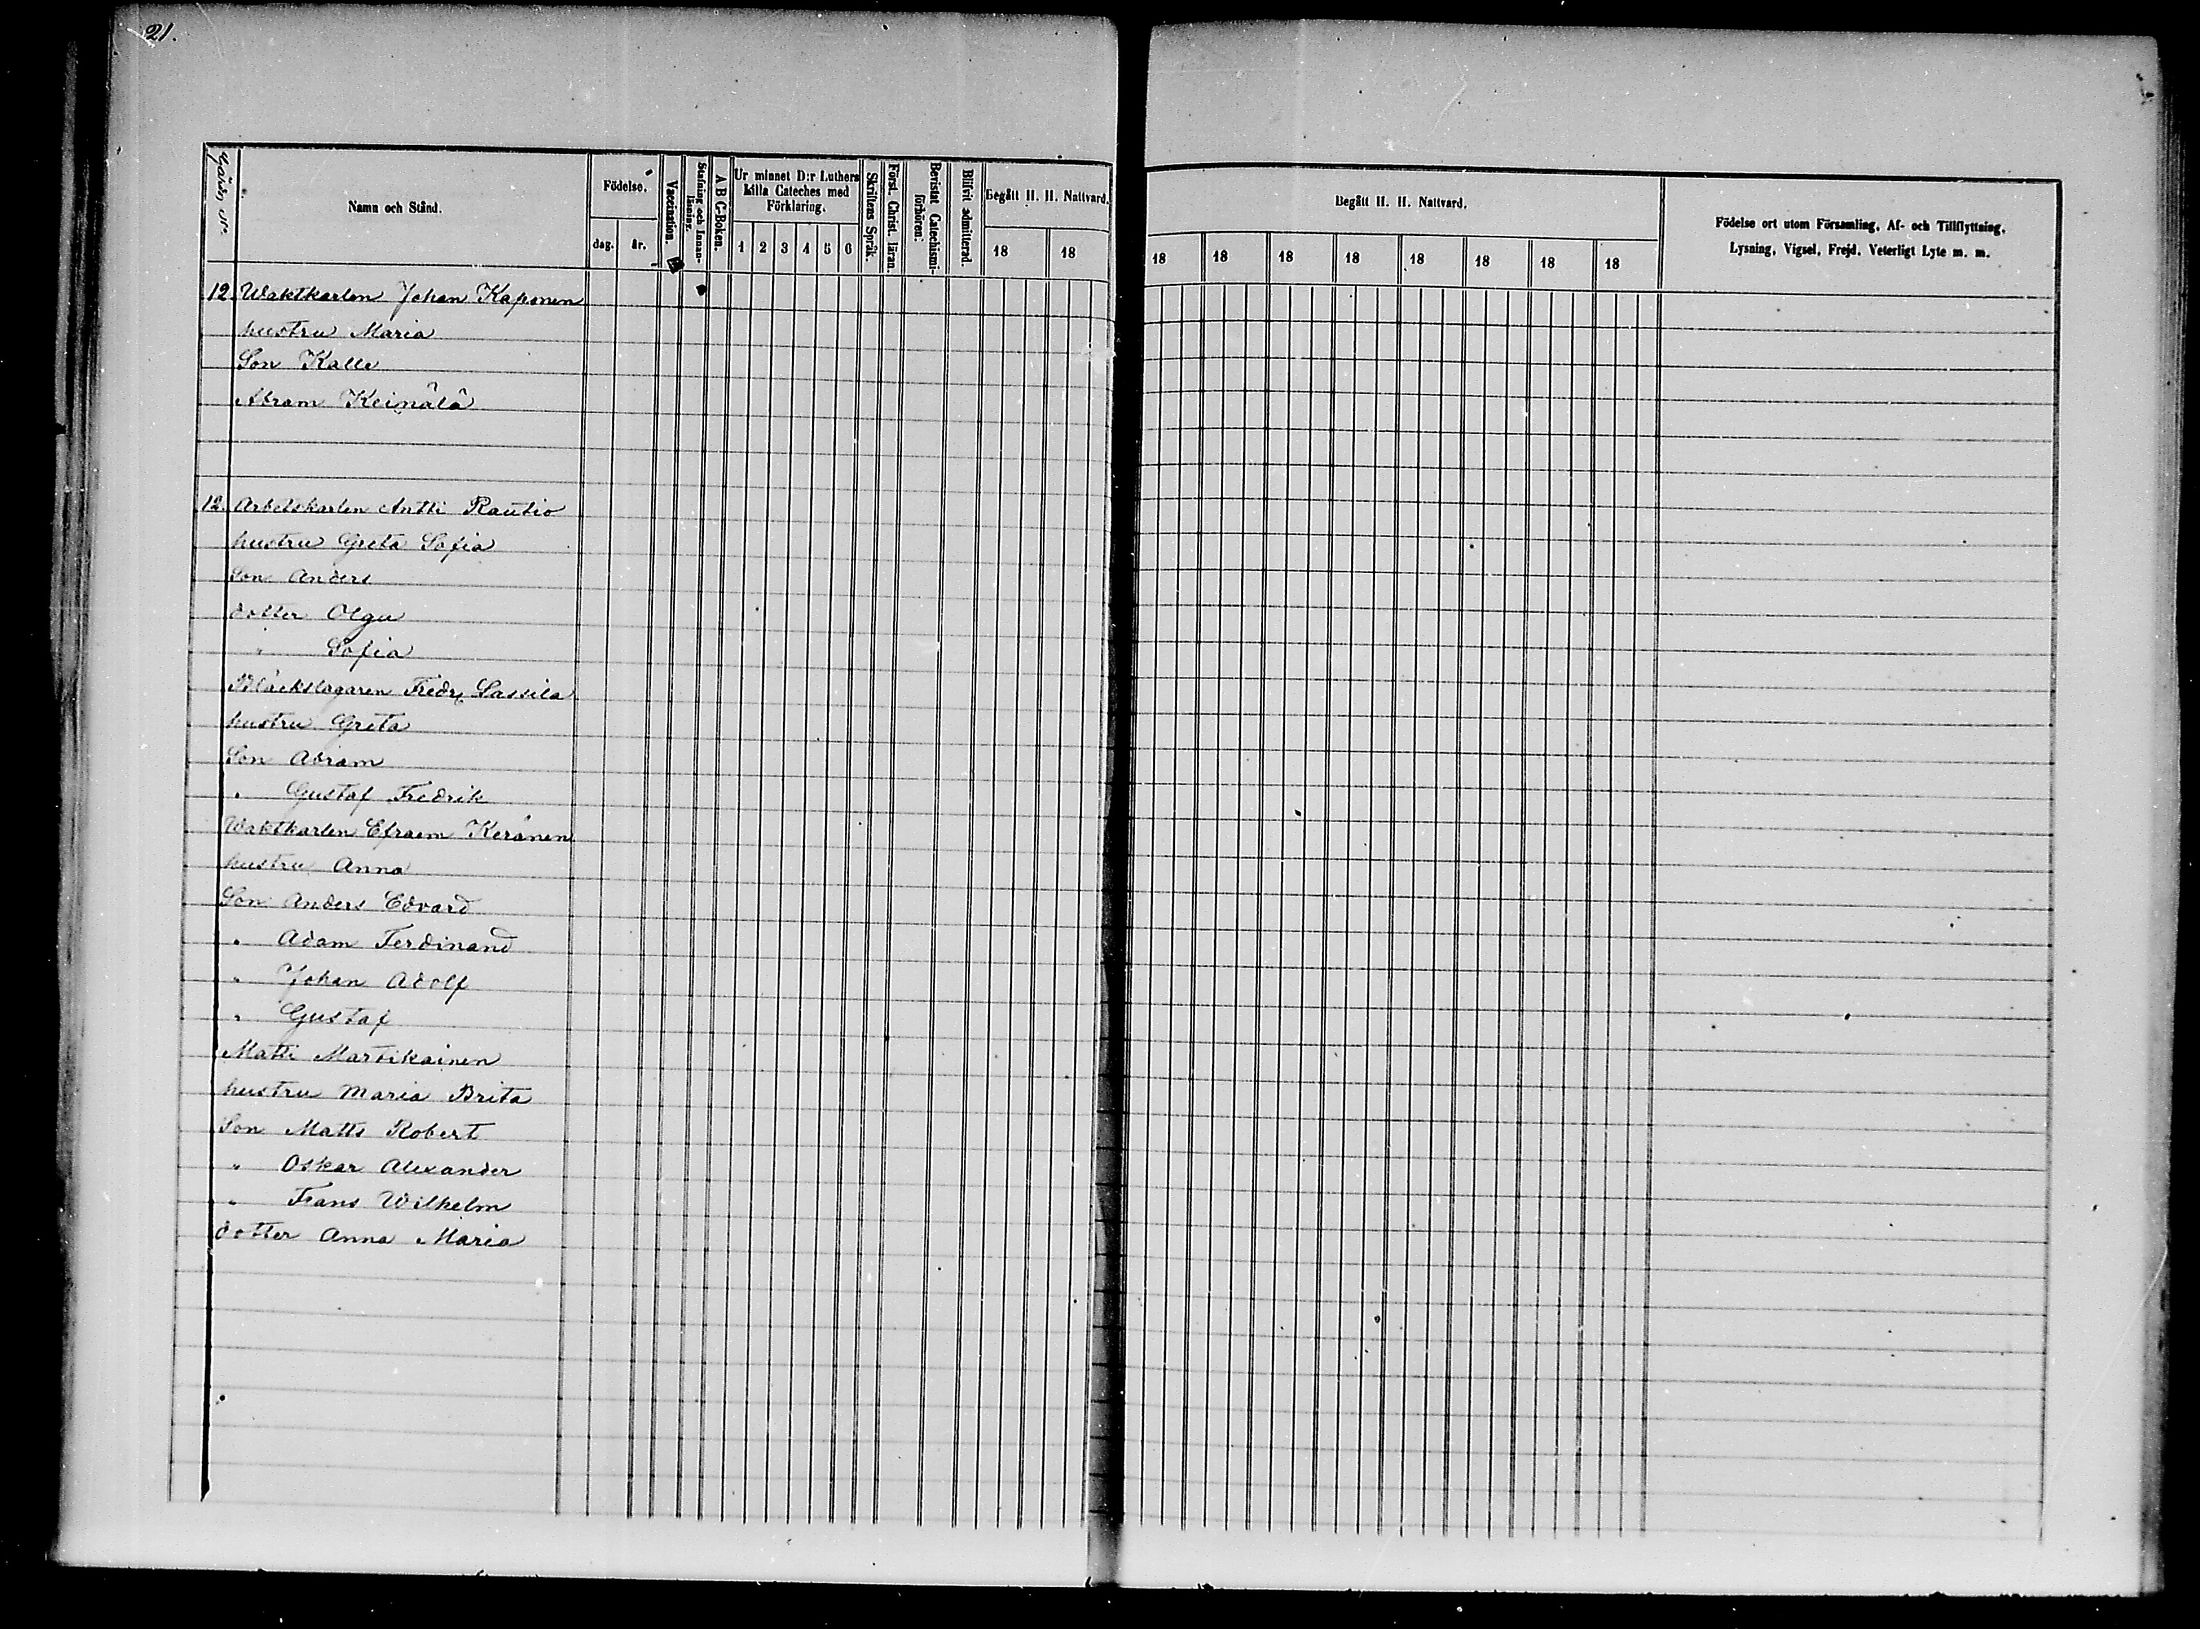 21.
Gårds No
Namn och Stånd.
Födelse.
dag.
år.
Vaccination.
Stafning och Innan-
läsning.
A B C-Boken.
Ur minnet D:r Luthers
lilla Cateches med
Förklaring.
1 2 3 4 5 6
Skriftens Språk.
Först. Christ. läran.
Bevistat Catechismi-
förhören:
Blifvit admitterad.
Begått H. H. Nattvard.
18 18
Begått H. H. Nattvard.
18 18 18 18 18 18 18 18
Födelse ort utom Församling, Af- och Tillflyttning,
Lysning, Vigsel, Frejd, Veterligt Lyte m. m.
12. Waktkarlen Johan Kaponen
hustru Maria
Son Kalle
Abram Keinälä
12. Arbetskarlen Antti Rautio
hustru Greta Sofia
Son Anders
dotter Olga
" Sofia
Bläckslagaren Fredr. Lassila
hustru Greta
Son Abram
" Gustaf Fredrik
Waktkarlen Efraem Keränen
hustru Anna
Son Anders Edvard
" Adam Ferdinand
" Johan Adolf
" Gustaf
Matti Martikainen
hustru Maria Brita
Son Matts Robert
" Oskar Alexander
" Frans Wilhelm
dotter Anna Maria